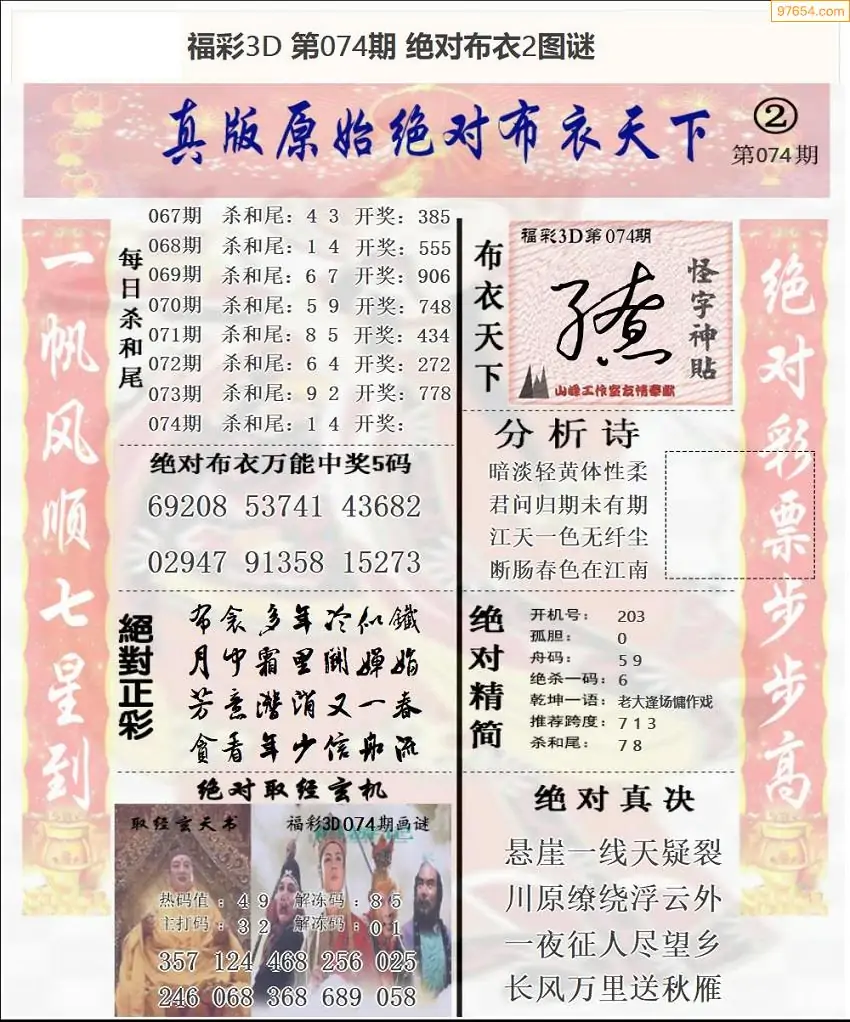 97654.com
福彩3D 第074期 绝对布衣2图谜
真版原始绝对布衣天下
②
第074期
一帆风顺七星到
每日杀和尾
067期 杀和尾：4 3 开奖：385
068期 杀和尾：1 4 开奖：555
069期 杀和尾：6 7 开奖：906
070期 杀和尾：5 9 开奖：748
071期 杀和尾：8 5 开奖：434
072期 杀和尾：6 4 开奖：272
073期 杀和尾：9 2 开奖：778
074期 杀和尾：1 4 开奖：
绝对布衣万能中奖5码
69208 53741 43682
02947 91358 15273
絕對正彩
布衾多年冷似鐵
月中霜里鬭嬋娟
芳意潛消又一春
貪看年少信船流
绝对取经玄机
取经玄天书
福彩3D074期画谜
热码值：4 9 解冻码：8 5
主打码：3 2 解冻码：0 1
357 124 468 256 025
246 068 368 689 058
布衣天下
福彩3D第074期
怪字神贴
山峰工作室友情奉献
分析诗
暗淡轻黄体性柔
君问归期未有期
江天一色无纤尘
断肠春色在江南
绝对精简
开机号：203
孤胆：0
舟码：5 9
绝杀一码：6
乾坤一语：老大逢场慵作戏
推荐跨度：7 1 3
杀和尾：7 8
绝对真决
悬崖一线天疑裂
川原缭绕浮云外
一夜征人尽望乡
长风万里送秋雁
绝对彩票步步高